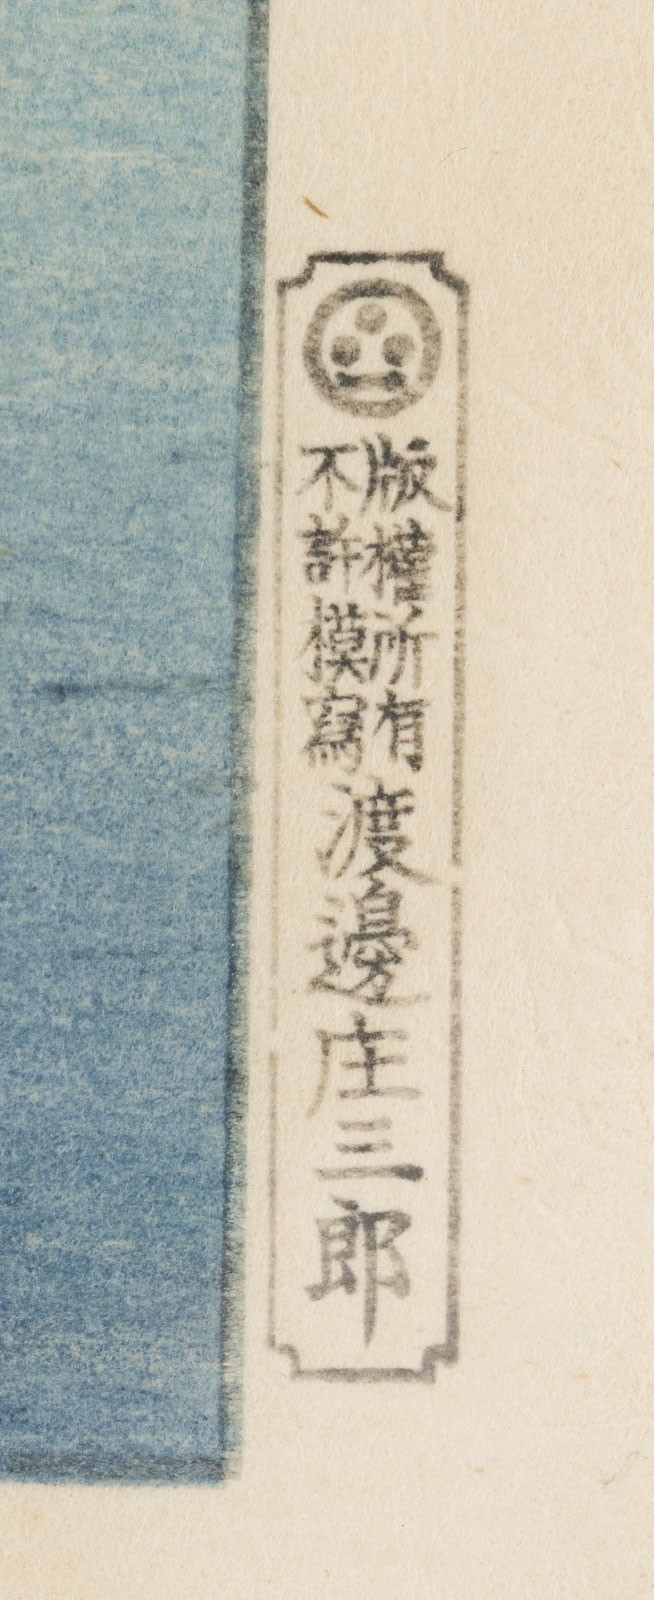 版權所有
不許模寫
渡邊庄三郎